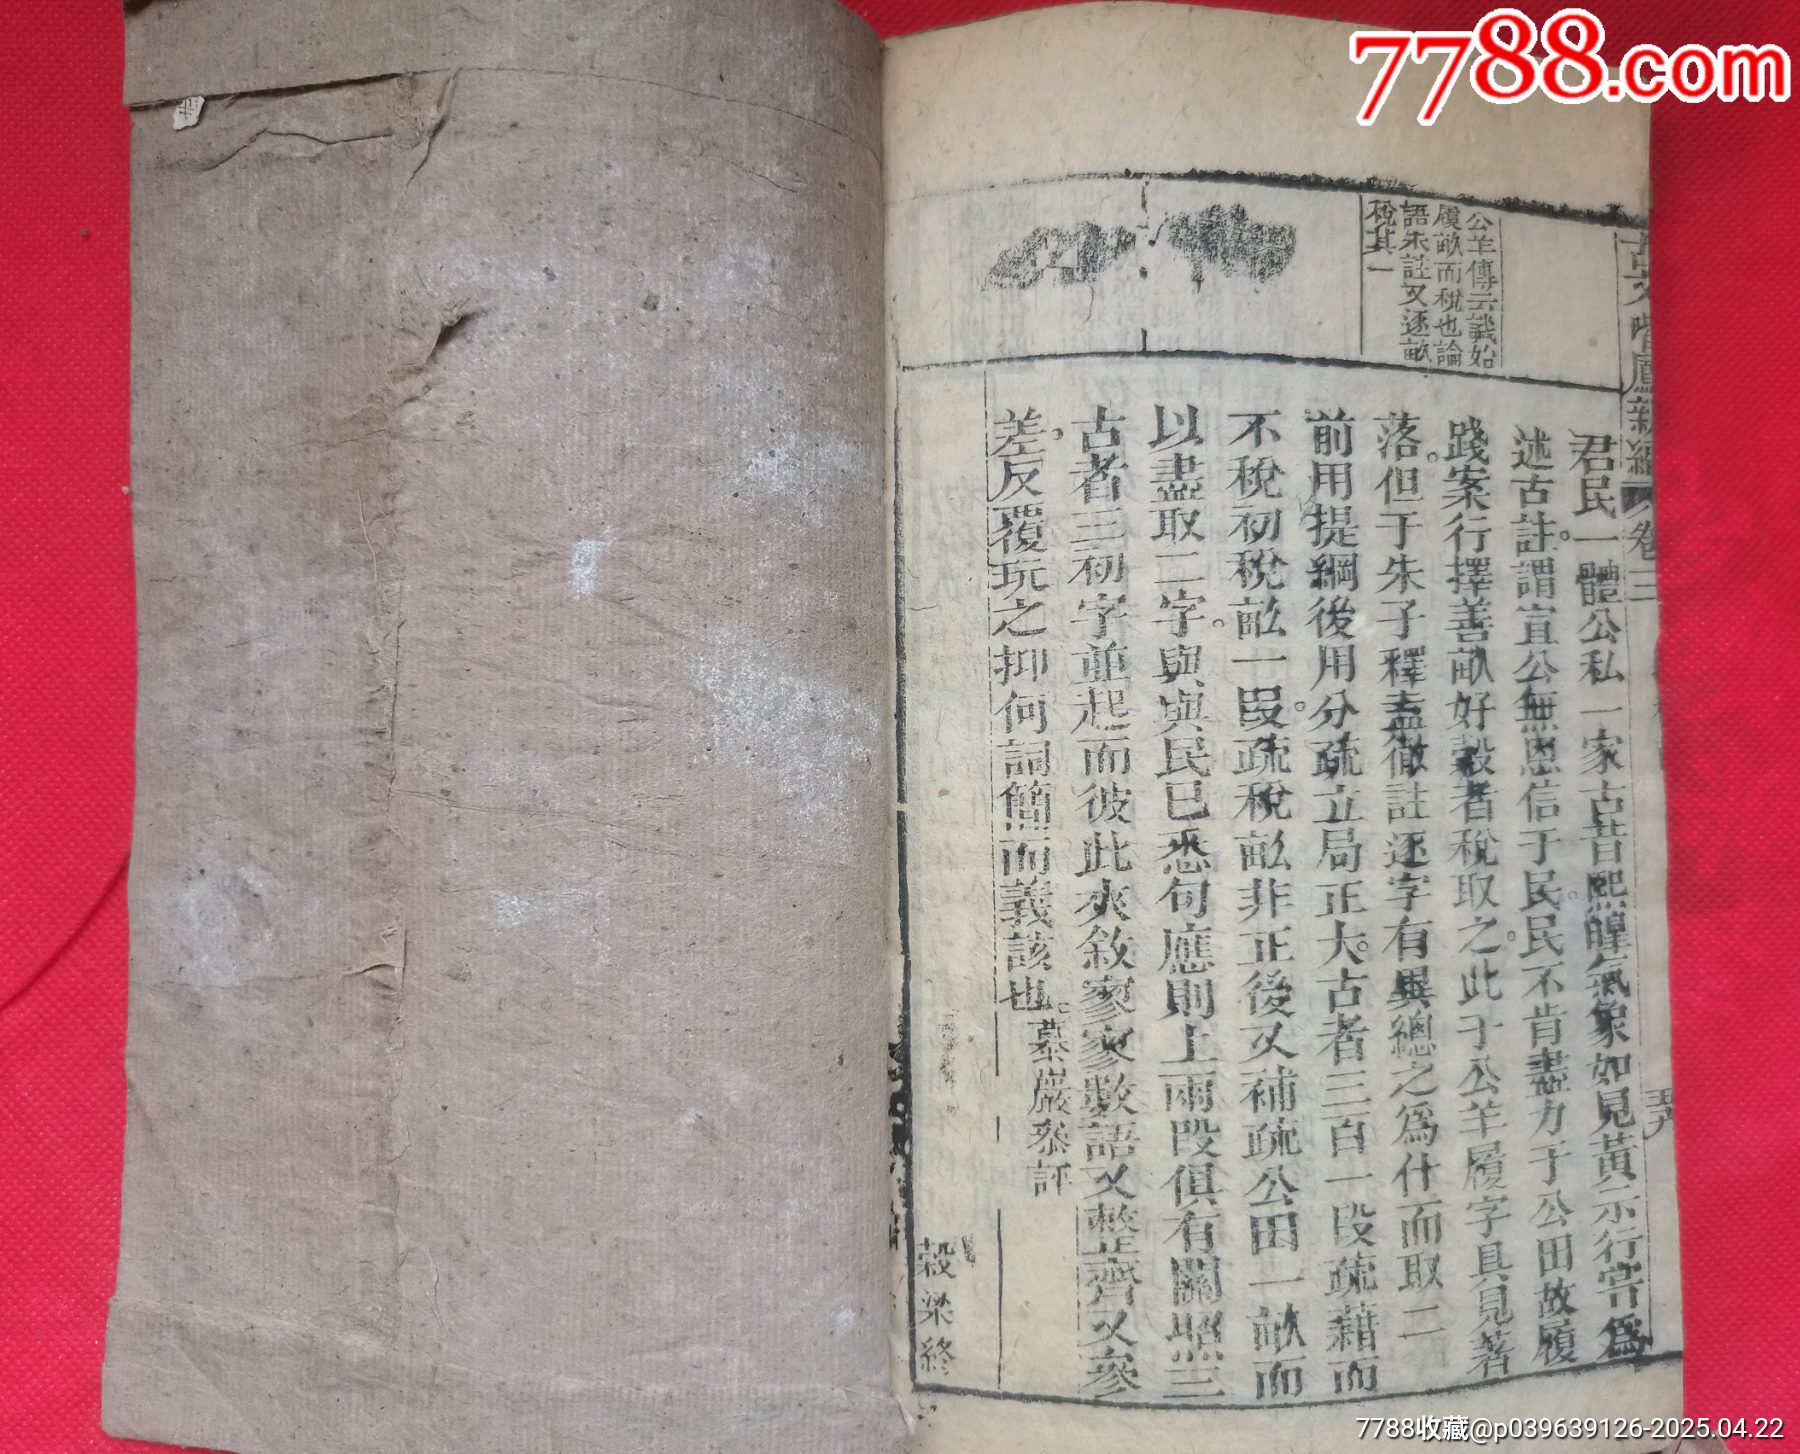 7788.com
古文嘗鳳新編 卷三
公羊傳云譏始
履畝而稅也論
語朱註又逐畝
稅其一
君民一體公私一家古昔熙皥氣象如見黃示行嘗爲
述古註謂宣公無恩信于民民不肯盡力于公田故履
踐案行擇善畝好穀者稅取之此于公羊履字具見著
落但于朱子釋盍徹註逐字有異總之爲什而取二
前用提綱後用分疏立局正大古者三百一段疏藉而
不稅初稅畝一段疏稅畝非正後又補疏公田一畝而
以盡取二字與與民已悉句應則上兩段俱有關照三
古者三初字並起而彼此夾敘寥寥數語又整齊又參
差反覆玩之抑何詞簡而義該也慕巖叅評
穀梁終
7788收藏@p039639126-2025.04.22